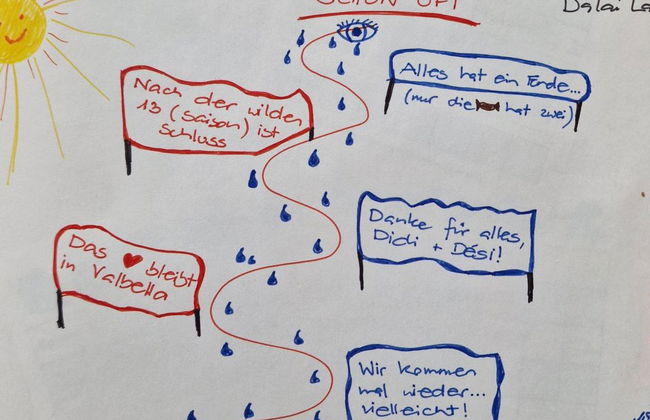 Dalai La
Alles hat ein Ende...
(nur die hat zwei)
Nach der wilden
13 (Saison) ist
schluss
Danke für alles,
Didi + Dési!
Das bleibt
in Valbella
Wir kommen
mal wieder...
vielleicht!